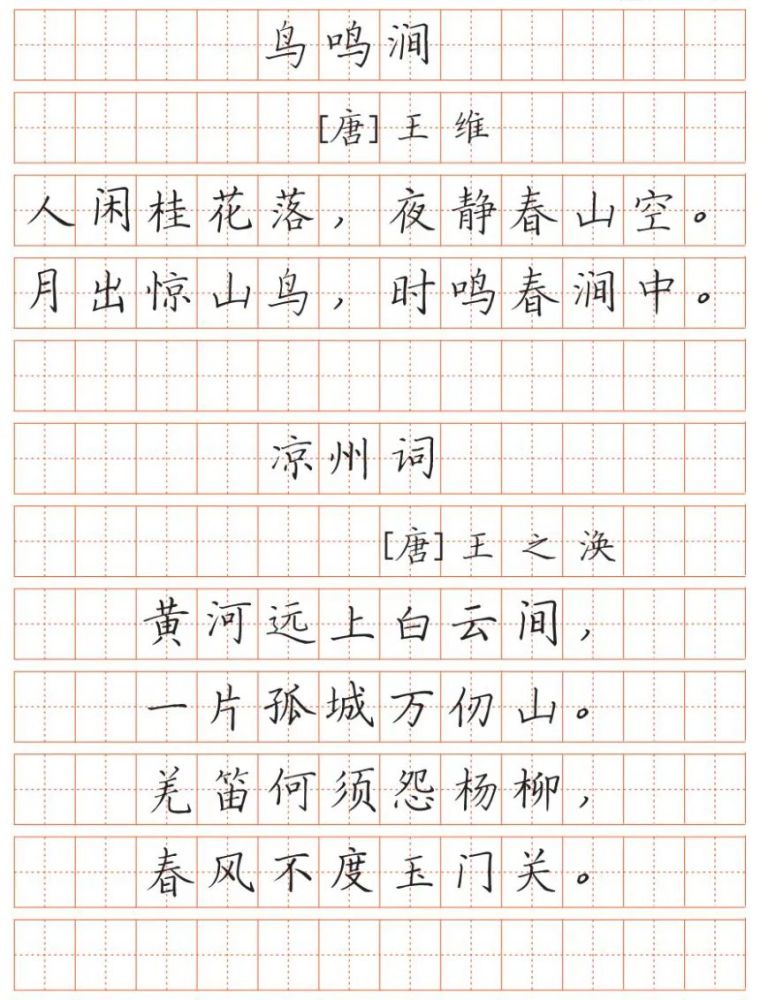 鸟鸣涧
[唐]王维
人闲桂花落，夜静春山空。
月出惊山鸟，时鸣春涧中。
凉州词
[唐]王之涣
黄河远上白云间，
一片孤城万仞山。
羌笛何须怨杨柳，
春风不度玉门关。